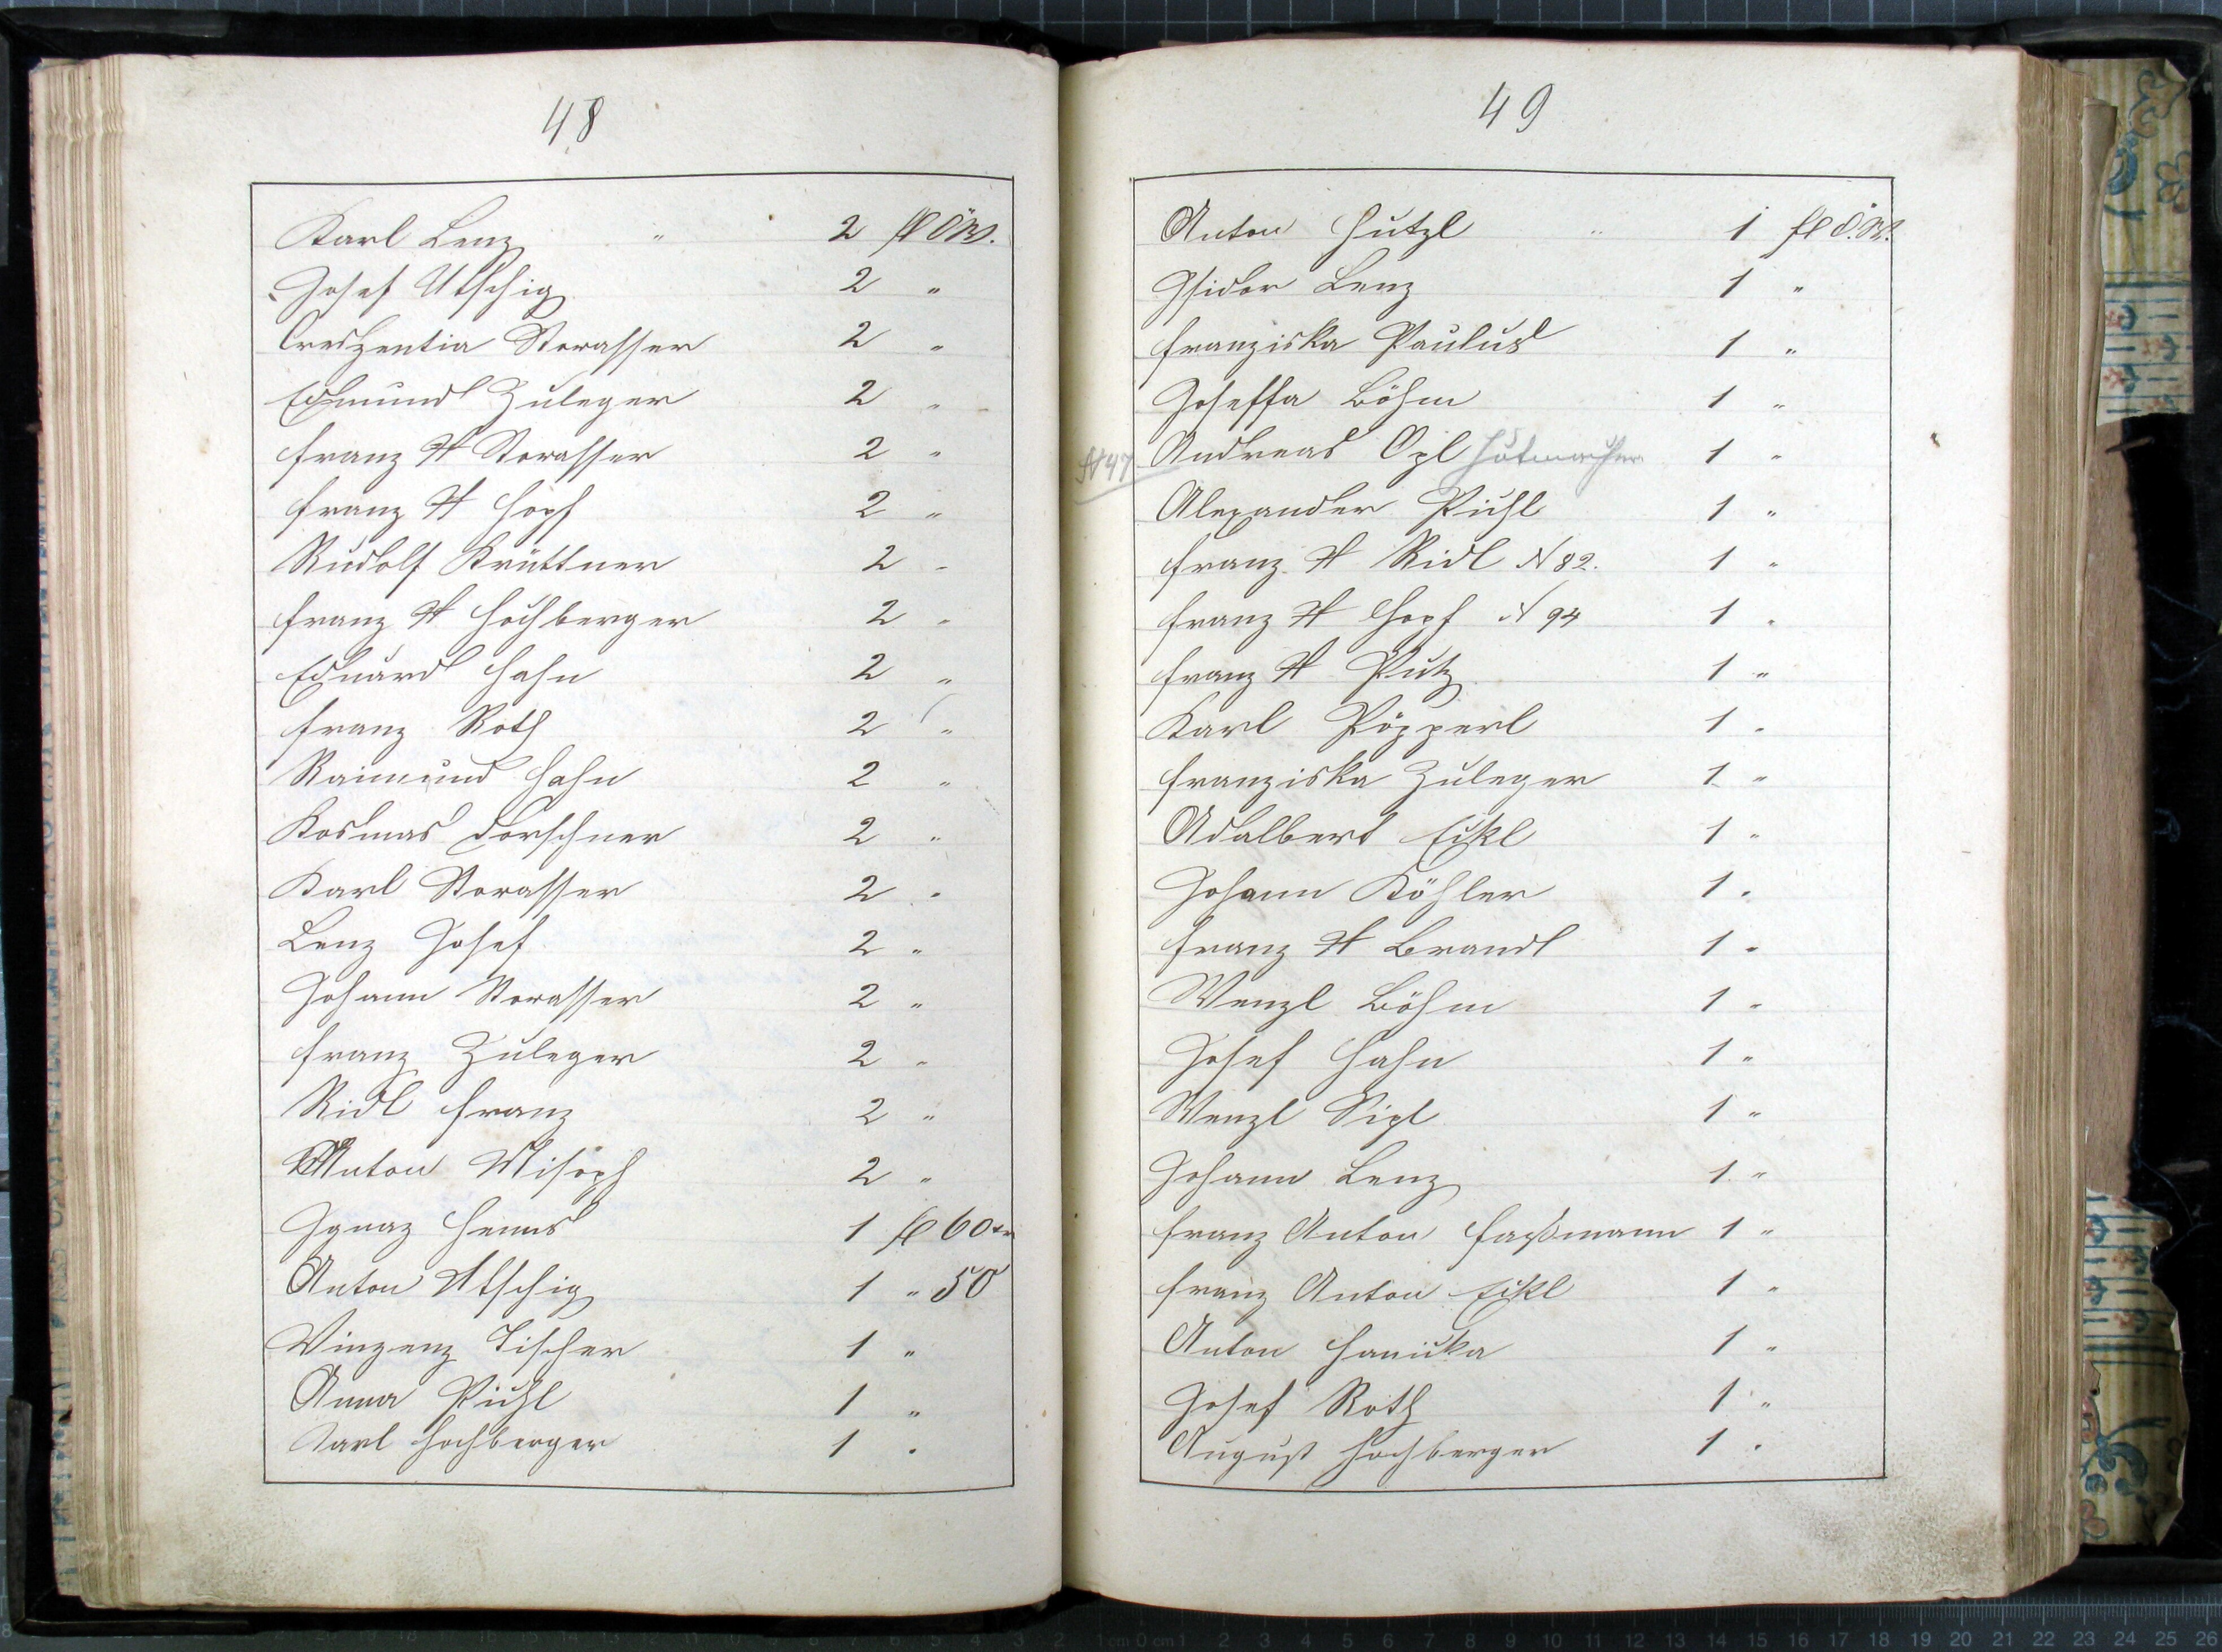 48
Karl Lenz " 2 fl ÖW.
Josef Utschig 2 "
Creszentia Storasser 2 "
Edmund Zuleger 2 "
Franz A Storasser 2 "
Franz A Hopf 2 "
Rudolf Krüttner 2 "
Franz A Hochberger 2 "
Eduard Hahn 2 "
Franz Roth 2 "
Raimund Hahn 2 "
Kosmas Dorschner 2 "
Karl Storasser 2 "
Lenz Josef 2 "
Johann Storasser 2 "
Franz Zuleger 2 "
Ridl Franz 2 "
Anton Misoph 2 "
Ignaz Henns 1 fl 60 xr
Anton Utschig 1 " 50
Vinzenz Tischer 1 "
Anna Pichl 1 "
Karl Hochberger 1 "
49
Anton Hutzl " 1 fl Ö.W.
Isidor Lenz 1 "
Franziska Paulus 1 "
Joseffa Böhm 1 "
N 47 Andreas Opl Hutmacher 1 "
Alexander Pichl 1 "
Franz A Ridl N 82. 1 "
Franz A Hopf N 94 1 "
Franz A Putz 1 "
Karl Pöpperl 1 "
Franziska Zuleger 1 "
Adalbert Eikl 1 "
Johann Köhler 1 "
Franz A Brandl 1 "
Wenzl Böhm 1 "
Josef Hahn 1 "
Wenzl Sipl 1 "
Johann Lenz 1 "
Franz Anton Faßmann 1 "
Franz Anton Eikl 1 "
Anton Hanicka 1 "
Josef Roth 1 "
August Hochberger 1 "